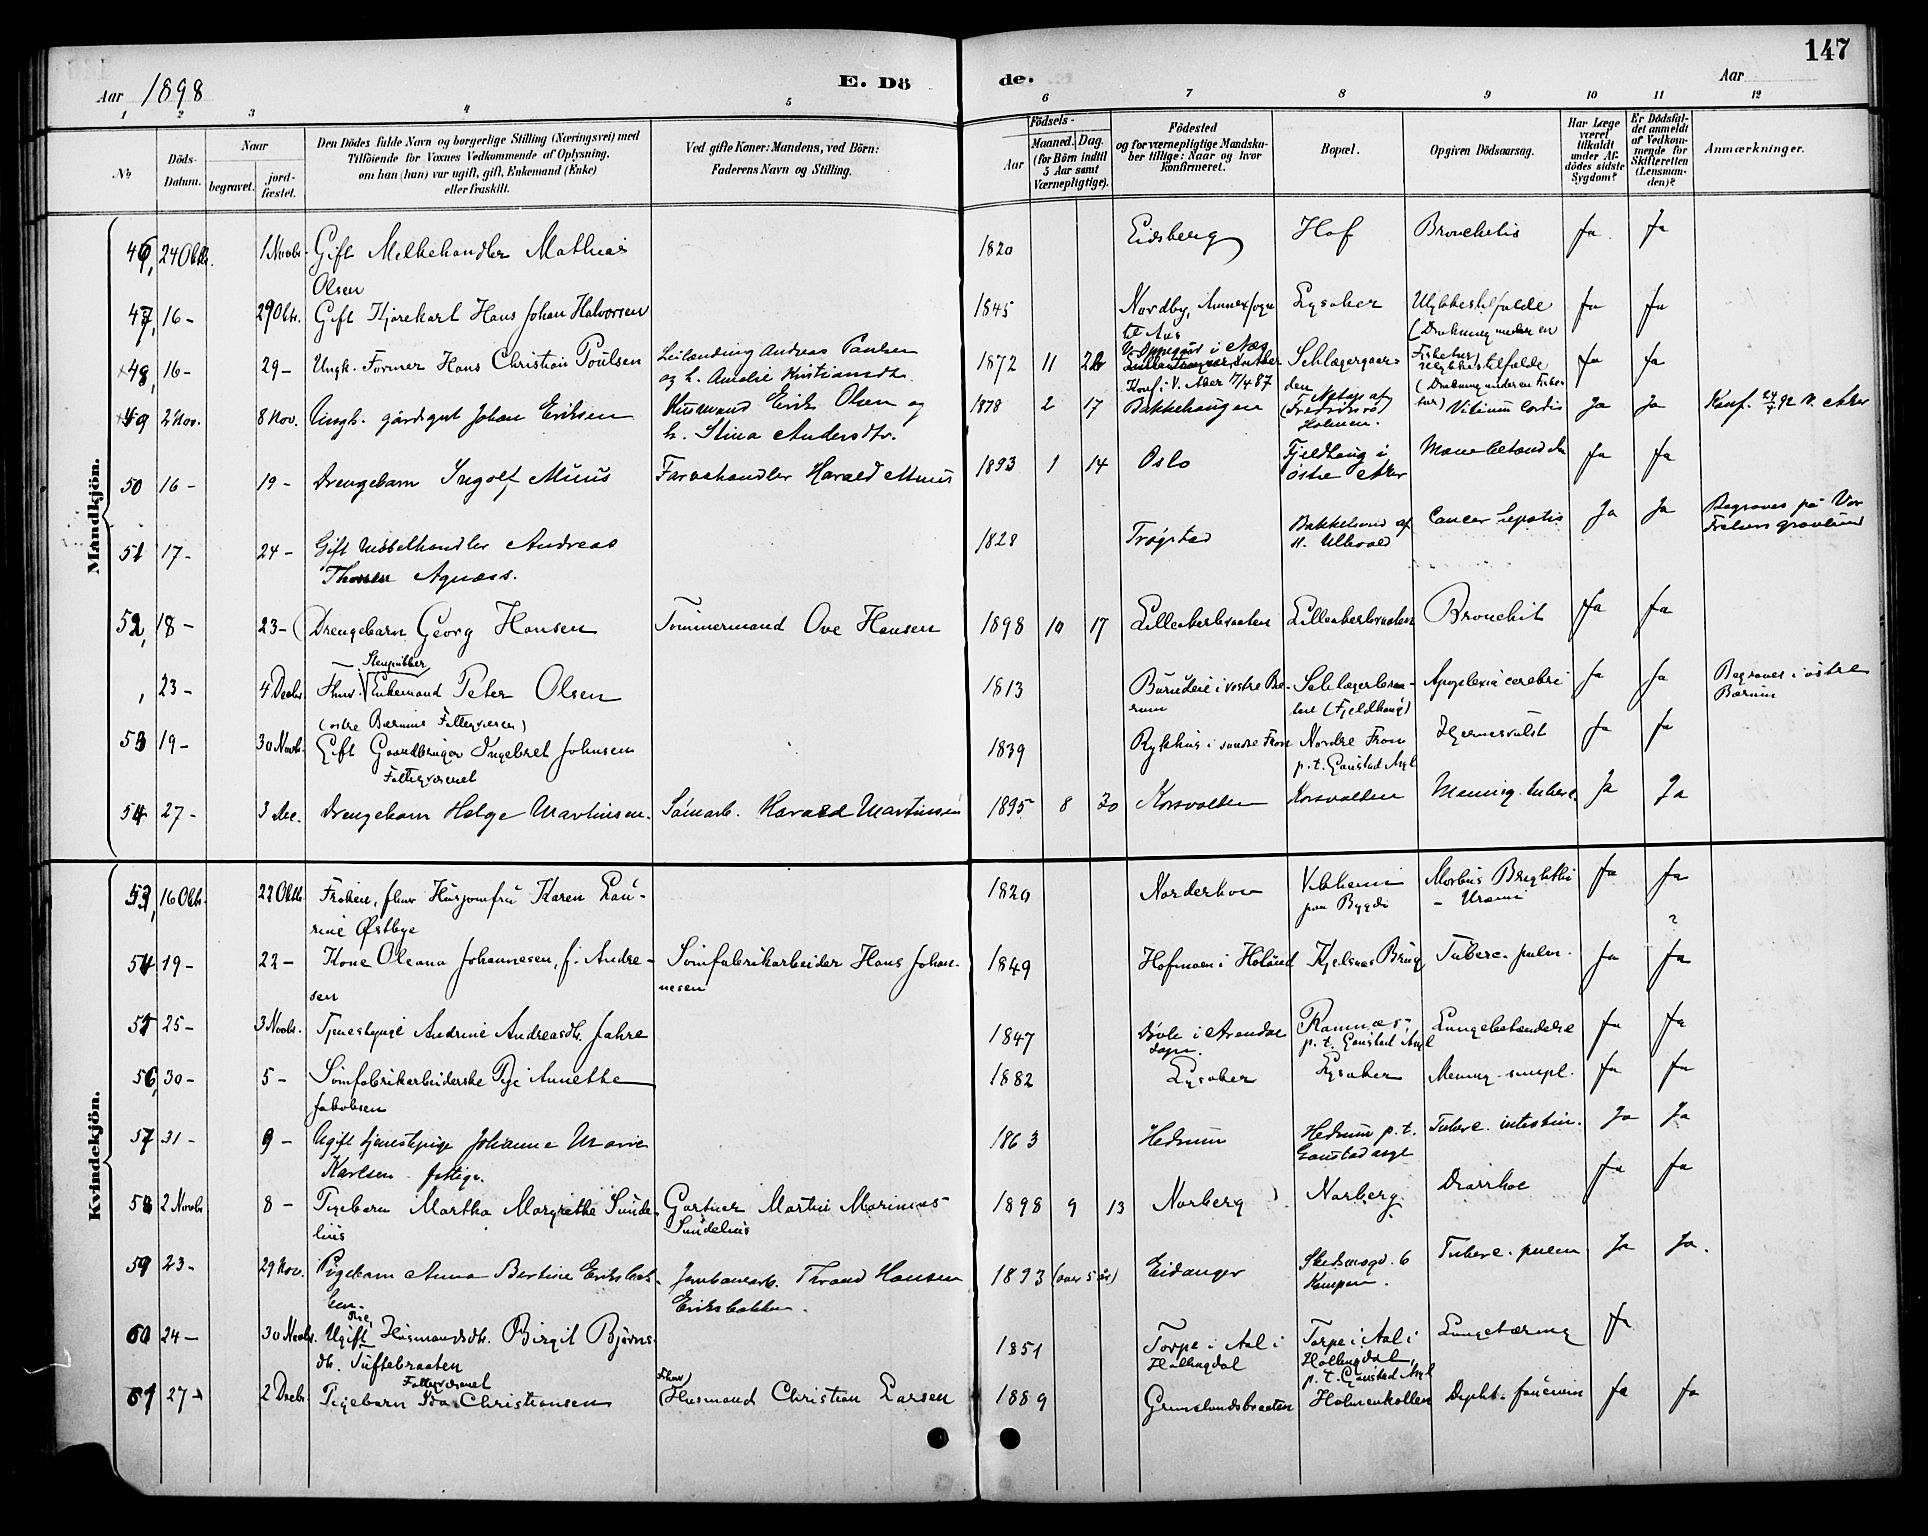 147
Aar 1898
E. Dö
de.
Aar
1 2 3 4 5 6 7 8 9 10 11 12
№
Döds-Datum.
Naar
begravet.
jord-fæstet.
Den Dödes fulde Navn og borgerlige Stilling (Næringsvei) med
Tilföiende for Voxnes Vedkommende af Oplysning,
om han (hun) var ugift, gift, Enkemand (Enke)
eller fraskilt.
Ved gifte Koner: Mandens, ved Börn:
Faderens Navn og Stilling.
Födsels-
Aar
Maaned. Dag.
(for Börn indtil
5 Aar samt
Værnepligtige).
Födested
og for værnepligtige Mandska-
ber tillige: Naar og hvor
konfirmeret.
Bopæl.
Opgiven Dödsaarsag.
Har Læge
været
tilkaldt
under Af-
dödes sidste
Sygdom?
Er Dödsfal-
det anmeldt
af Vedkom-
mende for
Skifteretten
(Lensman-
den)?
Anmærkninger.
Mandkjön.
46, 24 Oktb. 1 Novb. Gift Melkehandler Mathias 1820 Eidsberg Hof Bronchitis Ja Ja
Olsen
47, 16- 29 Oktb. Gift Kjørekarl Hans Johan Halvorsen 1845 Nordby, Annexsogn Lysaker Ulykkestilfælde Ja Ja
til Aas (Drukning under en
48, 16- 29- Ungk. Former Hans Christian Poulsen Leilænding Andreas Paulsen 1872 11 22 Schlægergaar- Fisketur) Ulykkestilfælde Ja Ja
og h. Amalie Kristiansdtr. Konf. i V. Aker 17/4 87 den (Drukning under en Fiske-
49 2 Nov. 8 Nov. Ungk. gårdsgut Johan Eriksen Husmand Erik Olsen og 1878 2 17 Bakkehaugen tur) Vitium Cordis Ja Ja Konf. 24/4 92 V. Aker
h. Stina Andersdtr. Holmen.
50 16- 19- Drengebarn Ingolf Muus Farvehandler Harald Muus 1893 1 14 Oslo Fjeldhaug i Ja Ja
østre Aker
51 17- 24- Gift Møbelhandler Andreas 1828 Trøgstad Bakkelund af Cancer hepatis Ja Ja Begraves på Vor
Agnæss. N. Ullevold Frelsers gravlund
52, 18- 23- Drengebarn Georg Hansen Tømmermand Ove Hansen 1898 10 17 Lilleakerbraaten Lilleakerbraaten Bronchit Ja Ja
, 23- 4 Decbr. Fhnv. Enkemand Peter Olsen 1813 i vestre Bæ- Apoplexia cerebri Ja Ja Begraves i østre
(østre Bærums Fattigvæsen) rum (Fjeldhaug) Bærum
53 19- 30 Novb. Gift Gaardbruger Ingebret Johnsen 1839 i søndre Fron Nordre Fron Hjernesvulst Ja Ja
Fattigvæsenet p. t. Gaustad Asyl
54 27- 3 Dec. Drengebarn Helge Martinsen. Sømarb. Harald Martinsen 1895 8 30 Korsvolden Korsvolden Mening. tuberc. Ja Ja
Kvindekjön.
53, 16 Oktb. 22 Oktb. Frøken, fhnv Husjomfru Karen Lau- 1820 Norderhov på Bygdø Morbus Brightii Ja Ja
rine Østbye - Uræmi ?
54 19- 22- Kone Oleana Johannesen, f. Andre- Sømfabrikarbeider Hans Johan- 1849 Hofmoen i Høland Kjelsaas Brug Tuberc. pulm. Ja Ja
sen nesen
55 25- 3 Novb. Tjenestepige Andrine Andreasdtr. Jahre 1847 i Arendal Ramnæs Lungebetændelse Ja Ja
p. t. Gaustad Asyl
56, 30- 5- Sømfabrikarbeiderske Pige Annette 1882 Lysaker Lysaker Mening. simpl. Ja Ja
Jakobsen
57 31- 9- Ugift tjenestepige Johanne Marie 1863 Hedrum Hedrum p. t. Tuberc. intestin. Ja Ja
Karlsen. fattige. Gaustad asyl
58 2 Novb 8- Pigebarn Martha Margrethe Sunde- Gartner Martin Marinius 1898 9 13 Norberg Norberg Diarrhoe Ja Ja
lius Sundelius
59 23- 29 Nov. Pigebarn Anna Bertine Eriksbak- Jernbanearb. Thrond Hansen 1893 (over 5 år) Eidanger Skedsmogd. 6 Tuberc. pulm Ja Ja.
ken. Eriksbakken. Kampen.
60 24- 30 Novb. Ugift Pige, Husmandsdtr. Birgit Bjørns- 1851 Torpe i Aal i Torpe i Aal i Lungetæring Ja
dtr. Tuftebraaten Hallingdal Hallingdal,
Fattigvæsenet p. t. Gaustad Asyl
61 27- 2 Decbr. Pigebarn Ida Christiansen Fhnv. Husmand Christian Larsen 1889 Grimelundsbraaten Holmenkollen Dipht. faucium Ja Ja